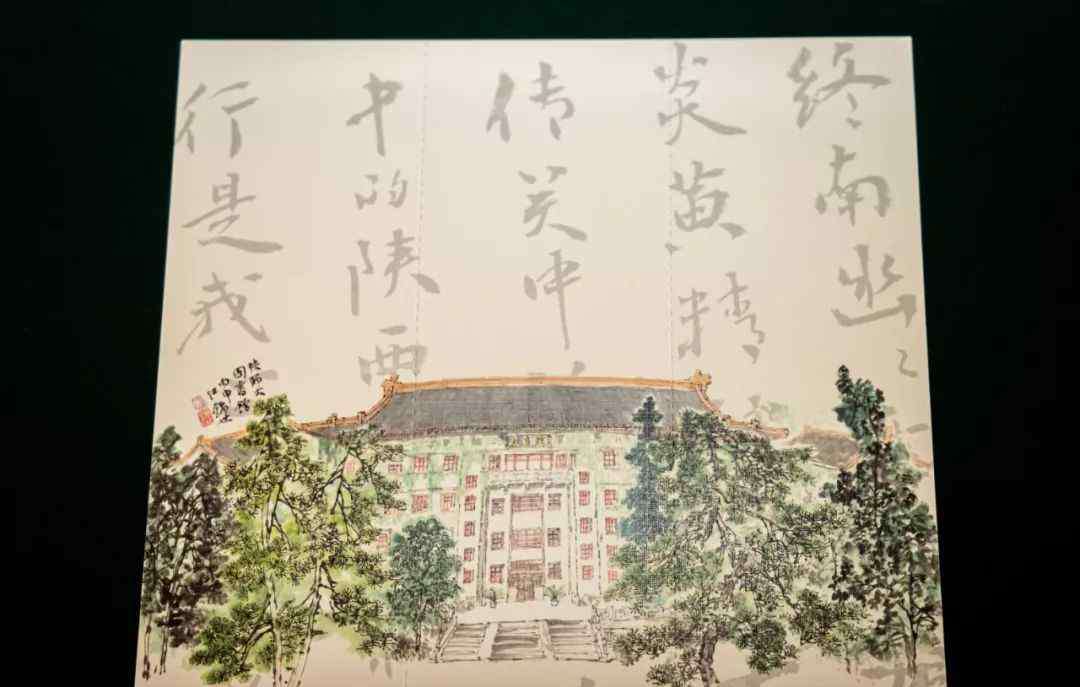 终南幽
炎黄精
传关中
中的陕西
行是我
陕师大
图书馆